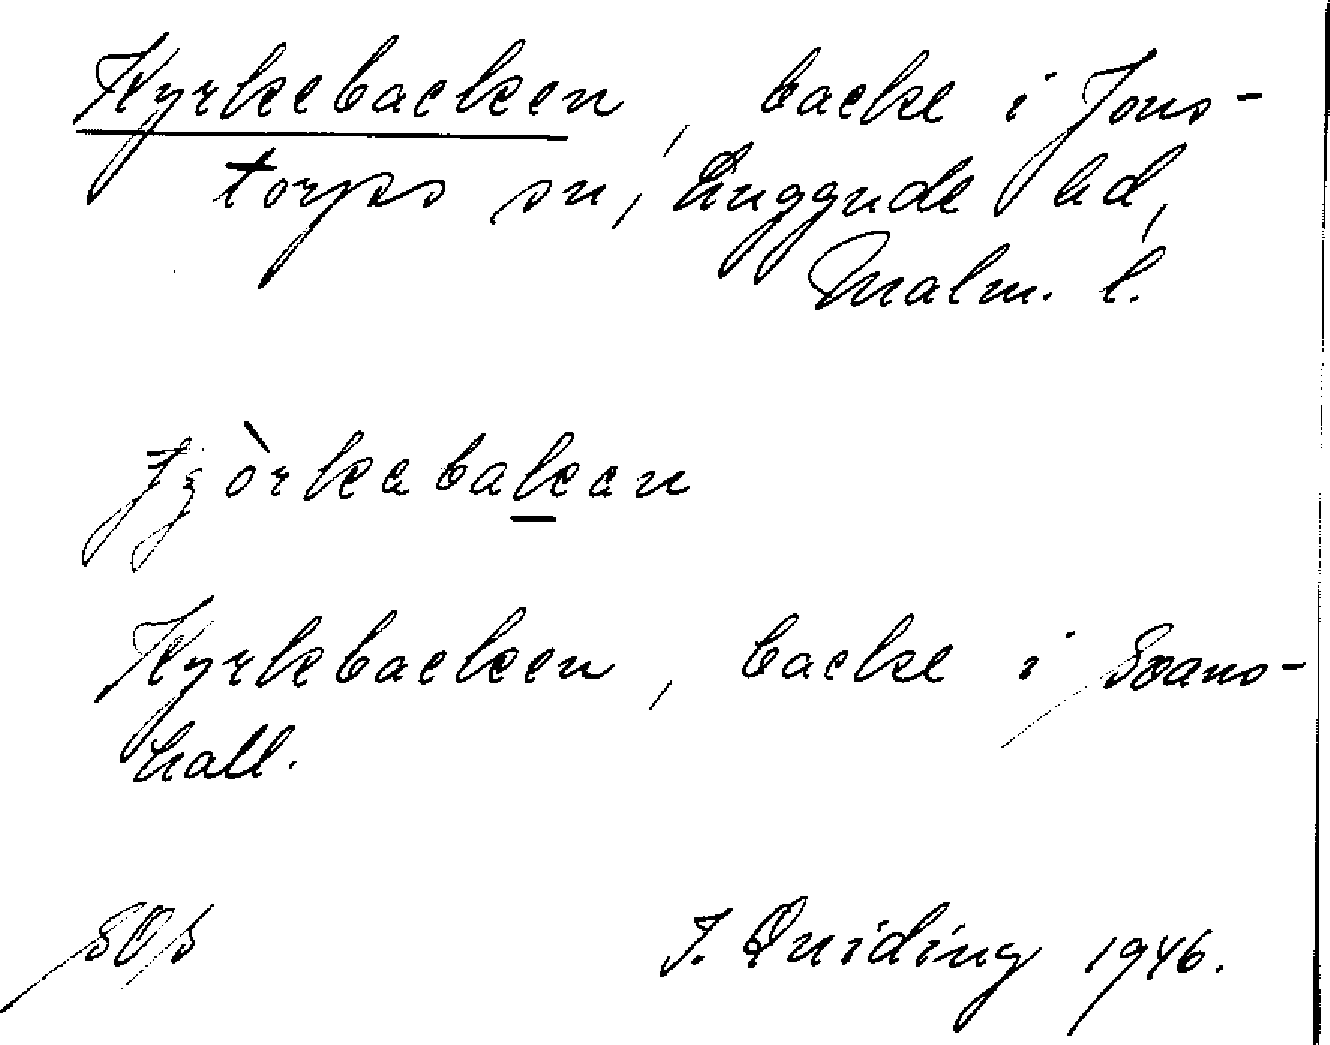 Kyrkebacken, backe i Jons-
torps sn, Luggude hd,
Malm. l.
Kyrkbacken, backe i Svans-
hall.
I. Quiding 1946.